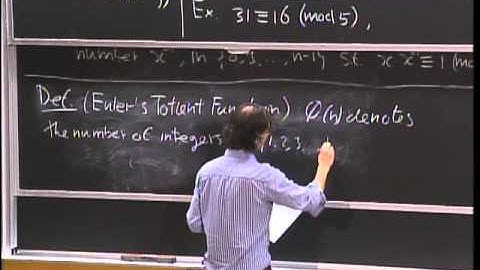 Ex. 31≡16 (mod 5),
number x in {0,1,...,n-1} s.t. x x ≡ 1 (mod
Def. (Euler's Totient Function) ϕ(n) denotes
the number of integers 1, 2, 3